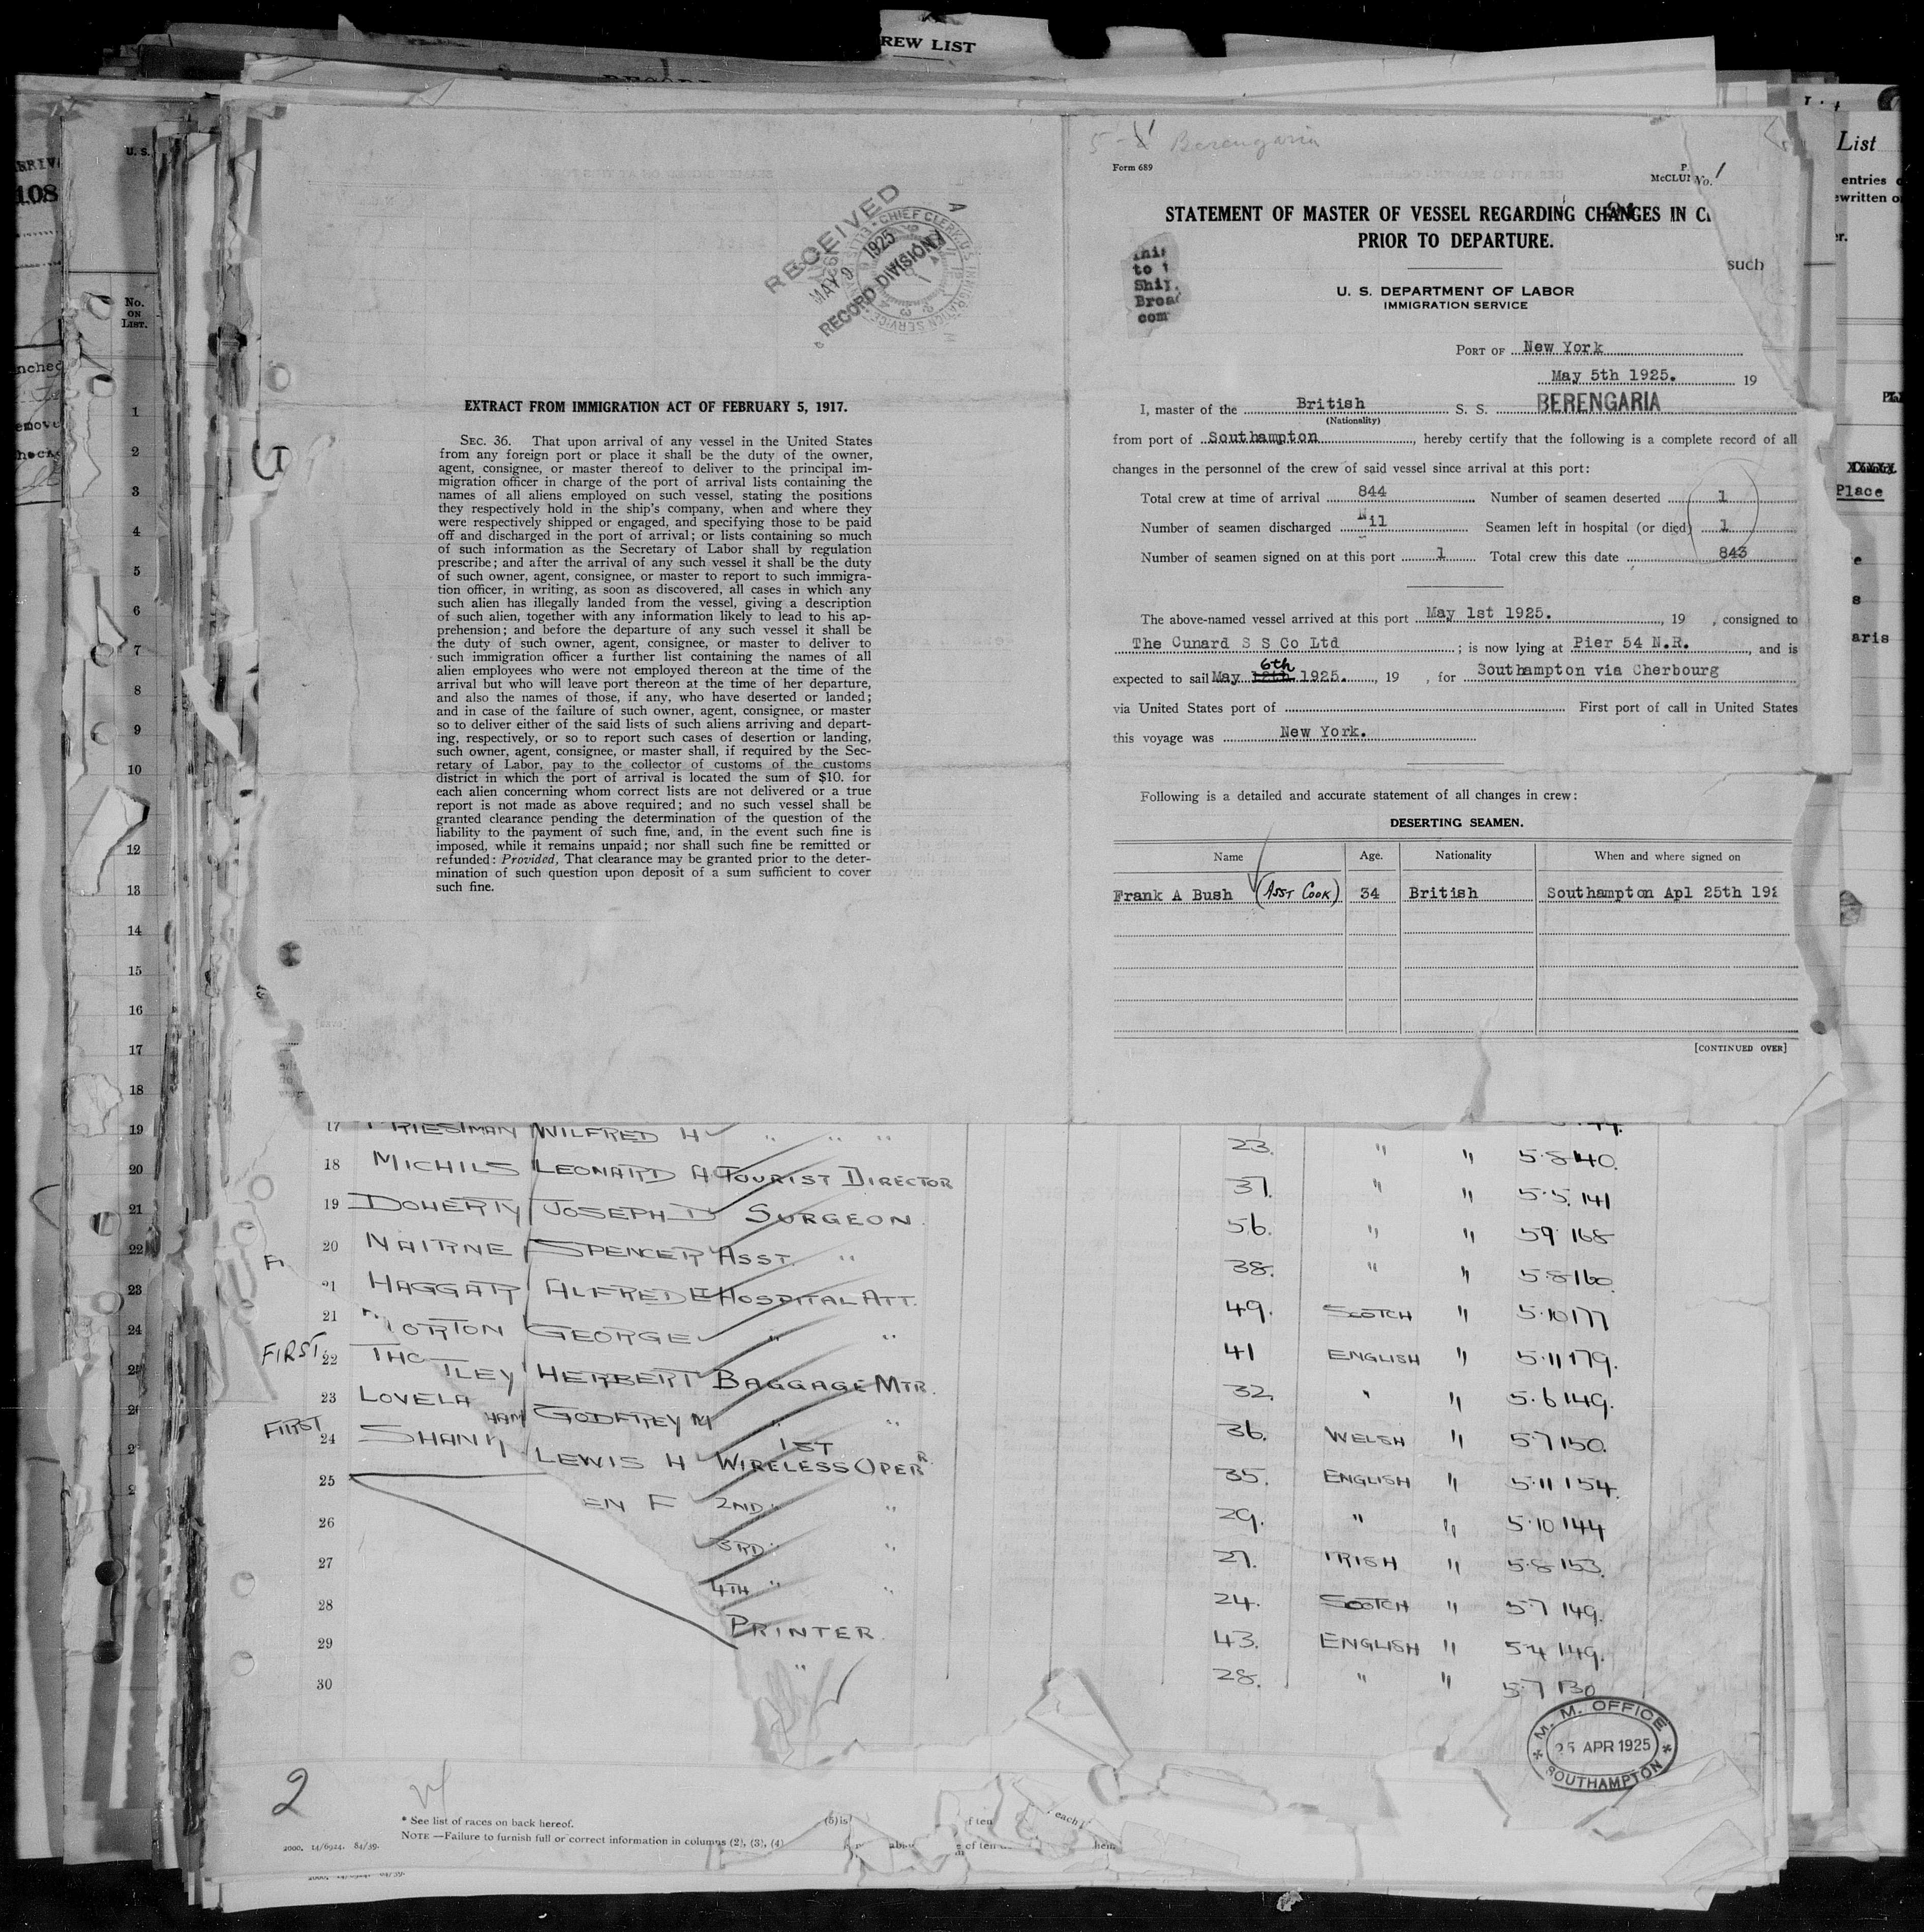 REW LIST
5- Berengaria
Form 689
McCLU No. 1
STATEMENT OF MASTER OF VESSEL REGARDING CHANGES IN C
PRIOR TO DEPARTURE.
such
U. S. DEPARTMENT OF LABOR
IMMIGRATION SERVICE
PORT OF New York
May 5th 1925. 19
I, master of the British S. S. BERENGARIA
(Nationality)
from port of Southampton, hereby certify that the following is a complete record of all
changes in the personnel of the crew of said vessel since arrival at this port:
Total crew at time of arrival 844 Number of seamen deserted 1
Number of seamen discharged Nil Seamen left in hospital (or died) 1
Number of seamen signed on at this port 1 Total crew this date 843
The above-named vessel arrived at this port May 1st 1925. , 19 , consigned to
The Cunard S S Co Ltd ; is now lying at Pier 54 N.R. , and is
6th
expected to sail May 12th 1925. , 19 , for Southampton via Cherbourg
via United States port of First port of call in United States
this voyage was New York.
Following is a detailed and accurate statement of all changes in crew:
DESERTING SEAMEN.
Name Age. Nationality When and where signed on
Frank A Bush (ASST COOK) 34 British Southampton Apl 25th 192
[CONTINUED OVER]
RECEIVED
MAY 9 1925
RECORD DIVISION
CHIEF CLERK, U.S. IMMIGRATION SERVICE
EXTRACT FROM IMMIGRATION ACT OF FEBRUARY 5, 1917.
SEC. 36. That upon arrival of any vessel in the United States
from any foreign port or place it shall be the duty of the owner,
agent, consignee, or master thereof to deliver to the principal im-
migration officer in charge of the port of arrival lists containing the
names of all aliens employed on such vessel, stating the positions
they respectively hold in the ship's company, when and where they
were respectively shipped or engaged, and specifying those to be paid
off and discharged in the port of arrival; or lists containing so much
of such information as the Secretary of Labor shall by regulation
prescribe; and after the arrival of any such vessel it shall be the duty
of such owner, agent, consignee, or master to report to such immigra-
tion officer, in writing, as soon as discovered, all cases in which any
such alien has illegally landed from the vessel, giving a description
of such alien, together with any information likely to lead to his ap-
prehension; and before the departure of any such vessel it shall be
the duty of such owner, agent, consignee, or master to deliver to
such immigration officer a further list containing the names of all
alien employees who were not employed thereon at the time of the
arrival but who will leave port thereon at the time of her departure,
and also the names of those, if any, who have deserted or landed;
and in case of the failure of such owner, agent, consignee, or master
so to deliver either of the said lists of such aliens arriving and depart-
ing, respectively, or so to report such cases of desertion or landing,
such owner, agent, consignee, or master shall, if required by the Sec-
retary of Labor, pay to the collector of customs of the customs
district in which the port of arrival is located the sum of $10. for
each alien concerning whom correct lists are not delivered or a true
report is not made as above required; and no such vessel shall be
granted clearance pending the determination of the question of the
liability to the payment of such fine, and, in the event such fine is
imposed, while it remains unpaid; nor shall such fine be remitted or
refunded: Provided, That clearance may be granted prior to the deter-
mination of such question upon deposit of a sum sufficient to cover
such fine.
U. S.
No.
ON
LIST.
1
2
3
4
5
6
7
8
9
10
12
13
14
15
16
17
18
19
20
21
22
23
24
108
List
entries
Place
aris
17 PRIESTMAN WILFRED H " " " 23. " "
18 MICHILS LEONARD A TOURIST DIRECTOR 37. " " 5·8 140.
19 DOHERTY JOSEPH D SURGEON. 56. " " 5·5. 141
20 NAIRNE SPENCER ASST. " 38. " " 5·9 168
21 HAGGAR ALFRED E HOSPITAL ATT. 49. SCOTCH " 5·8 160.
21 ORTON GEORGE " " 41 ENGLISH " 5·10 177
FIRST 22 THO TLEY HERBERT BAGGAGE MTR. 32. " " 5·11 179.
23 LOVELA HAM GODFREY M " " 36. WELSH " 5·6 149.
FIRST 24 SHANN LEWIS H 1ST WIRELESS OPERR. 35. ENGLISH " 5·7 150.
25 EN F 2ND " " 29. " " 5·11 154.
26 3RD " " 27. IRISH " 5·10 144
27 4TH " " 24. SCOTCH " 5·8 153.
28 PRINTER. 43. ENGLISH " 5·7 149.
29 " 28. " " 5·4 149.
30 5·7 130
M. M. OFFICE
25 APR 1925
SOUTHAMPTON
2
* See list of races on back hereof.
NOTE —Failure to furnish full or correct information in columns (2), (3), (4) (5) is
2000. 14/6924. 84/39.